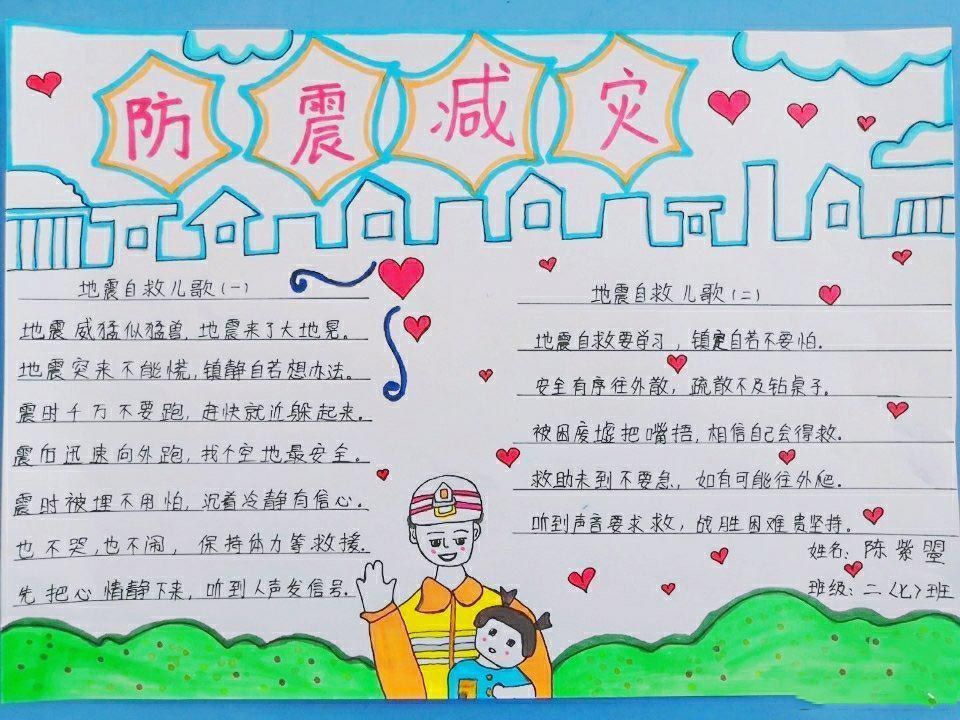 防震减灾
地震自救儿歌(一)
地震威猛似猛兽,地震来了大地晃。
地震突来不能慌,镇静自若想办法。
震时千万不要跑,赶快就近躲起来。
震后迅速向外跑,找个空地最安全。
震时被埋不用怕,沉着冷静有信心。
也不哭,也不闹,保持体力等救援.
先把心情静下来,听到人声发信号.
地震自救儿歌(二)
地震自救要学习,镇定自若不要怕.
安全有序往外散,疏散不及钻桌子.
被困废墟把嘴捂,相信自己会得救.
救助未到不要急,如有可能往外爬.
听到声音要求救,战胜困难贵坚持。
姓名:陈紫曌
班级:二〈七〉班